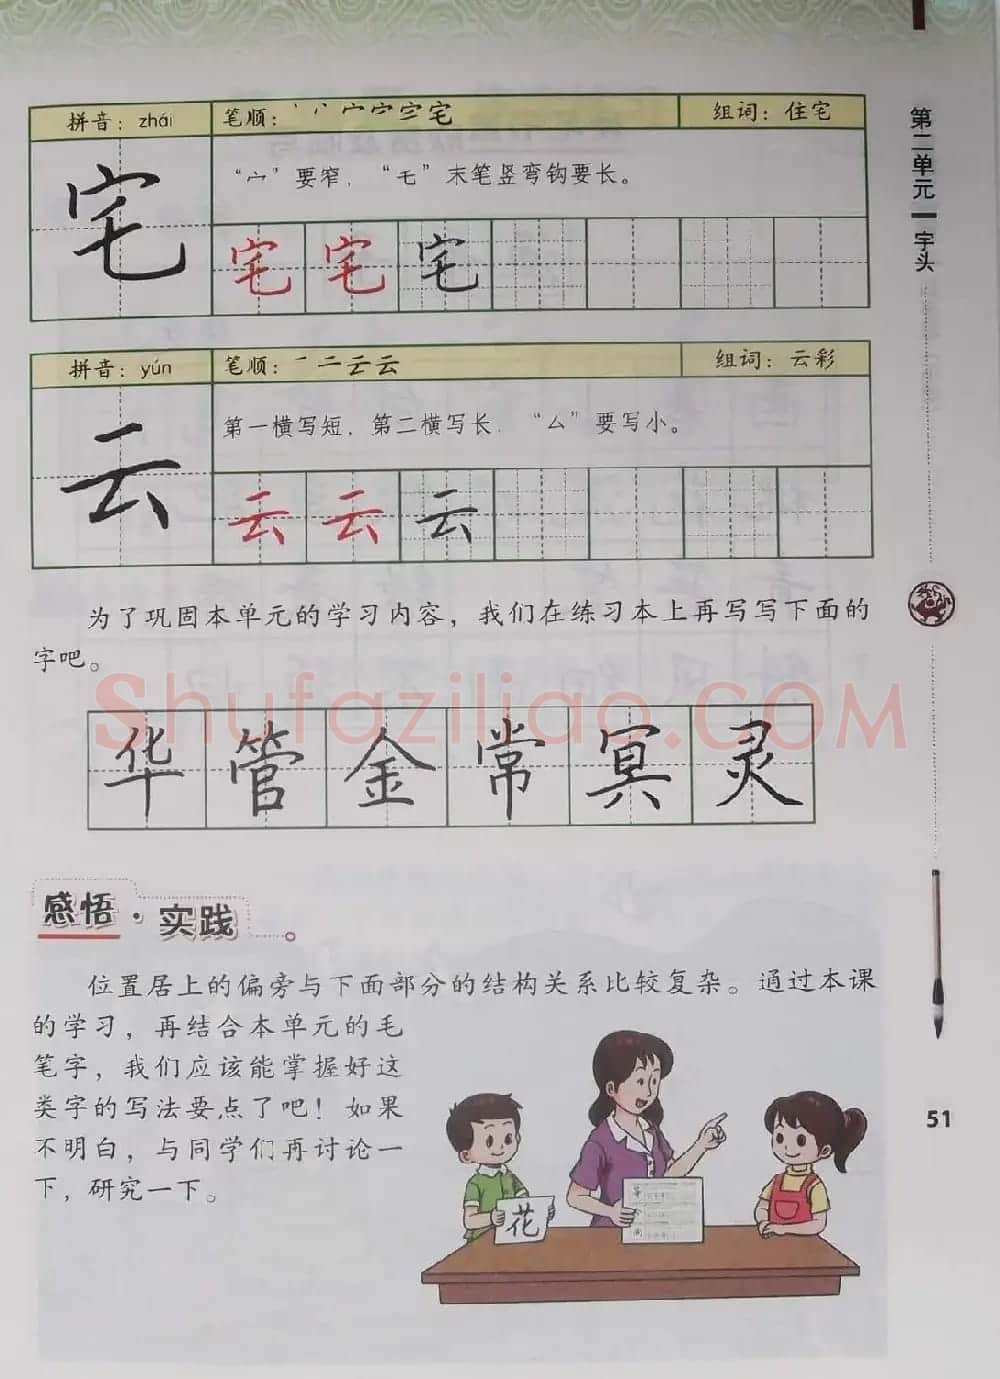 拼音：zhái 笔顺：丶丷宀宀宅宅 组词：住宅
宅
“宀”要窄，“乇”末笔竖弯钩要长。
宅 宅 宅
拼音：yún 笔顺：一二云云 组词：云彩
云
第一横写短，第二横写长，“厶”要写小。
云 云 云
为了巩固本单元的学习内容，我们在练习本上再写写下面的
字吧。
华 管 金 常 冥 灵
感悟·实践
位置居上的偏旁与下面部分的结构关系比较复杂。通过本课
的学习，再结合本单元的毛
笔字，我们应该能掌握好这
类字的写法要点了吧！如果
不明白，与同学们再讨论一
下，研究一下。
花
第二单元
字头
51
Shufaziliao.COM